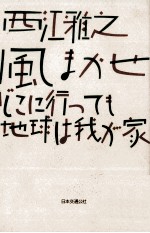 西江雅之
風まかせ
どこに行っても
地球は我が家
日本交通公社